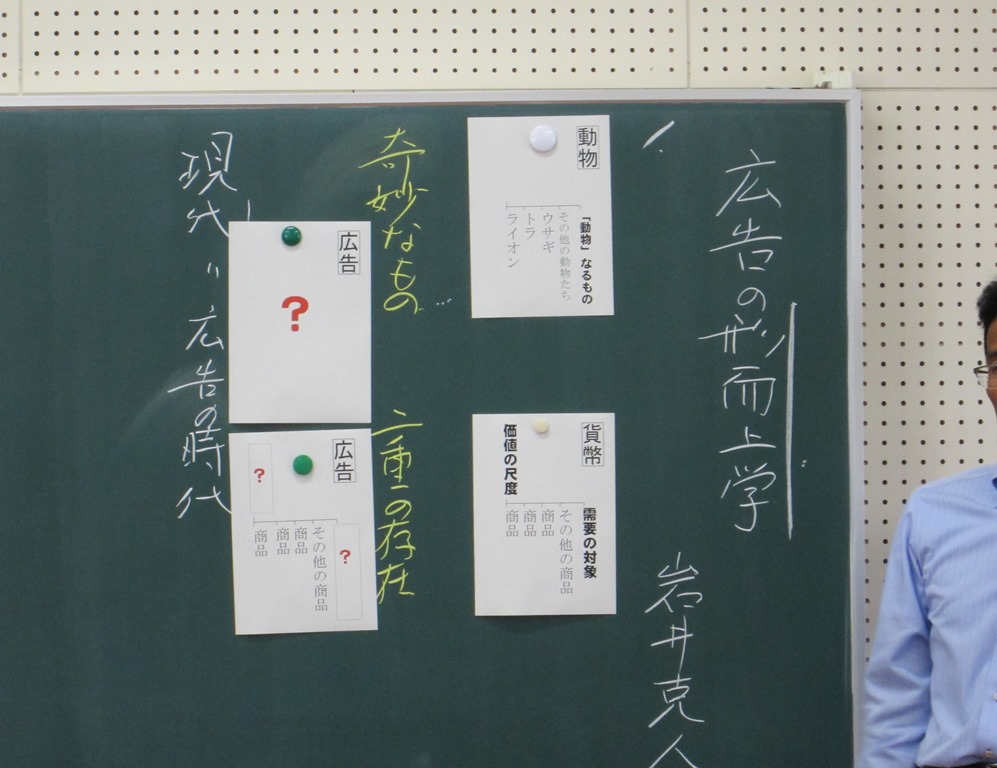 広告の形而上学
岩井克人
動物
「動物」なるもの
その他の動物たち
ウサギ
トラ
ライオン
貨幣
需要の対象
その他の商品
商品
商品
商品
価値の尺度
奇妙なもの…
二重の存在
広告
?
広告
?
その他の商品
商品
商品
商品
?
現代＝広告の時代